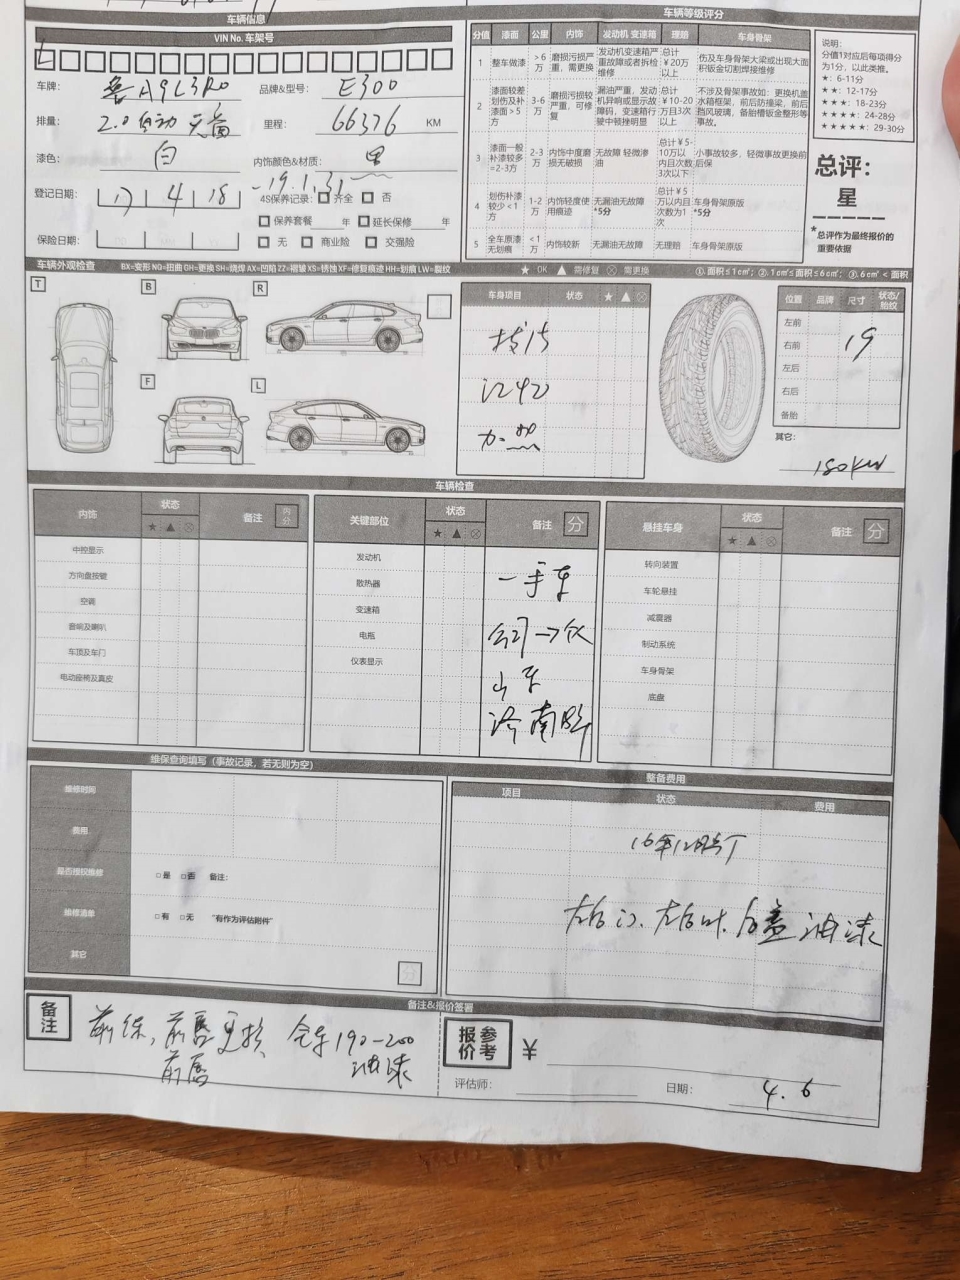 车辆信息
VIN No. 车架号
车牌: 鲁A9L3R0 品牌&型号: E300
排量: 2.0 自动 里程: 66376 KM
漆色: 白 内饰颜色&材质: 黑
登记日期: 17 4 18 -19.1.31 4S保养记录: 齐全 否
保养套餐 年 延长保修 年
保险日期: 无 商业险 交强险
车辆等级评分
分值 漆面 公里 内饰 发动机 变速箱 理赔 车身骨架
1 整车做漆 >6万 磨损污损严重,需更换 发动机变速箱严重故障或者拆检维修 总计¥20万以上 伤及车身骨架大梁或出现大面积钣金切割焊接维修
2 漆面较差划伤及补漆面>5方 3-6万 磨损污损较严重,可修复 漏油严重,发动机异响或显示故障码,变速箱行驶中顿挫明显 总计¥10-20万且3次以上 不涉及骨架事故如:更换机盖水箱框架,前后防撞梁,前后挡风玻璃,备胎槽钣金整形等事故。
3 漆面一般补漆较多=2-3方 2-3万 内饰中度磨损无破损 无故障 轻微渗油 总计¥5-10万以内且次数3次以下 小事故较多,轻微事故更换前后保
4 划伤补漆较少<1方 1-2万 内饰轻度使用痕迹 无漏油无故障 *5分 总计¥5万以内且次数为1次 车身骨架原版 *5分
5 全车原漆无划痕 <1万 内饰较新 无漏油无故障 无理赔 车身骨架原版
说明:
分值1对应后每项得分为1分,以此类推。
★: 6-11分
★★: 12-17分
★★★: 18-23分
★★★★: 24-28分
★★★★★: 29-30分
总评:
星
*总评作为最终报价的重要依据
车辆外观检查 BX=变形 NG=扭曲 GH=更换 SH=烧焊 AX=凹陷 ZZ=褶皱 XS=锈蚀 XF=修复痕迹 HH=划痕 LW=裂纹 ★ OK ▲ 需修复 ⊗ 需更换 ①. 面积≤1c㎡; ②. 1c㎡≤面积≤6c㎡; ③. 6c㎡<面积
T B R
F L
车身项目 状态 ★ ▲ ⊗
记忆
加热
位置 品牌 尺寸 状态/胎纹
左前
右前 19
左后
右后
备胎
其它:
180KW
车辆检查
内饰 状态 ★ ▲ ⊗ 备注 内分
中控显示
方向盘按键
空调
音响及喇叭
车顶及车门
电动座椅及真皮
关键部位 状态 ★ ▲ ⊗ 备注 分
发动机
散热器
变速箱
电瓶
仪表显示
一手车
公司→
山东
济南
悬挂车身 状态 ★ ▲ ⊗ 备注 分
转向装置
车轮悬挂
减震器
制动系统
车身骨架
底盘
维保查询填写(事故记录,若无则为空)
维修时间
费用
是否授权维修 □是 □否 备注:
维修清单 □有 □无 "有作为评估附件"
其它 分
整备费用
项目 状态 费用
16年12月出厂
左后门. 左后叶. 后盖 油漆
备注&报价签署
备注
前保, 更换 全车190-200
油漆
参考报价 ¥
评估师: 日期: 4.6